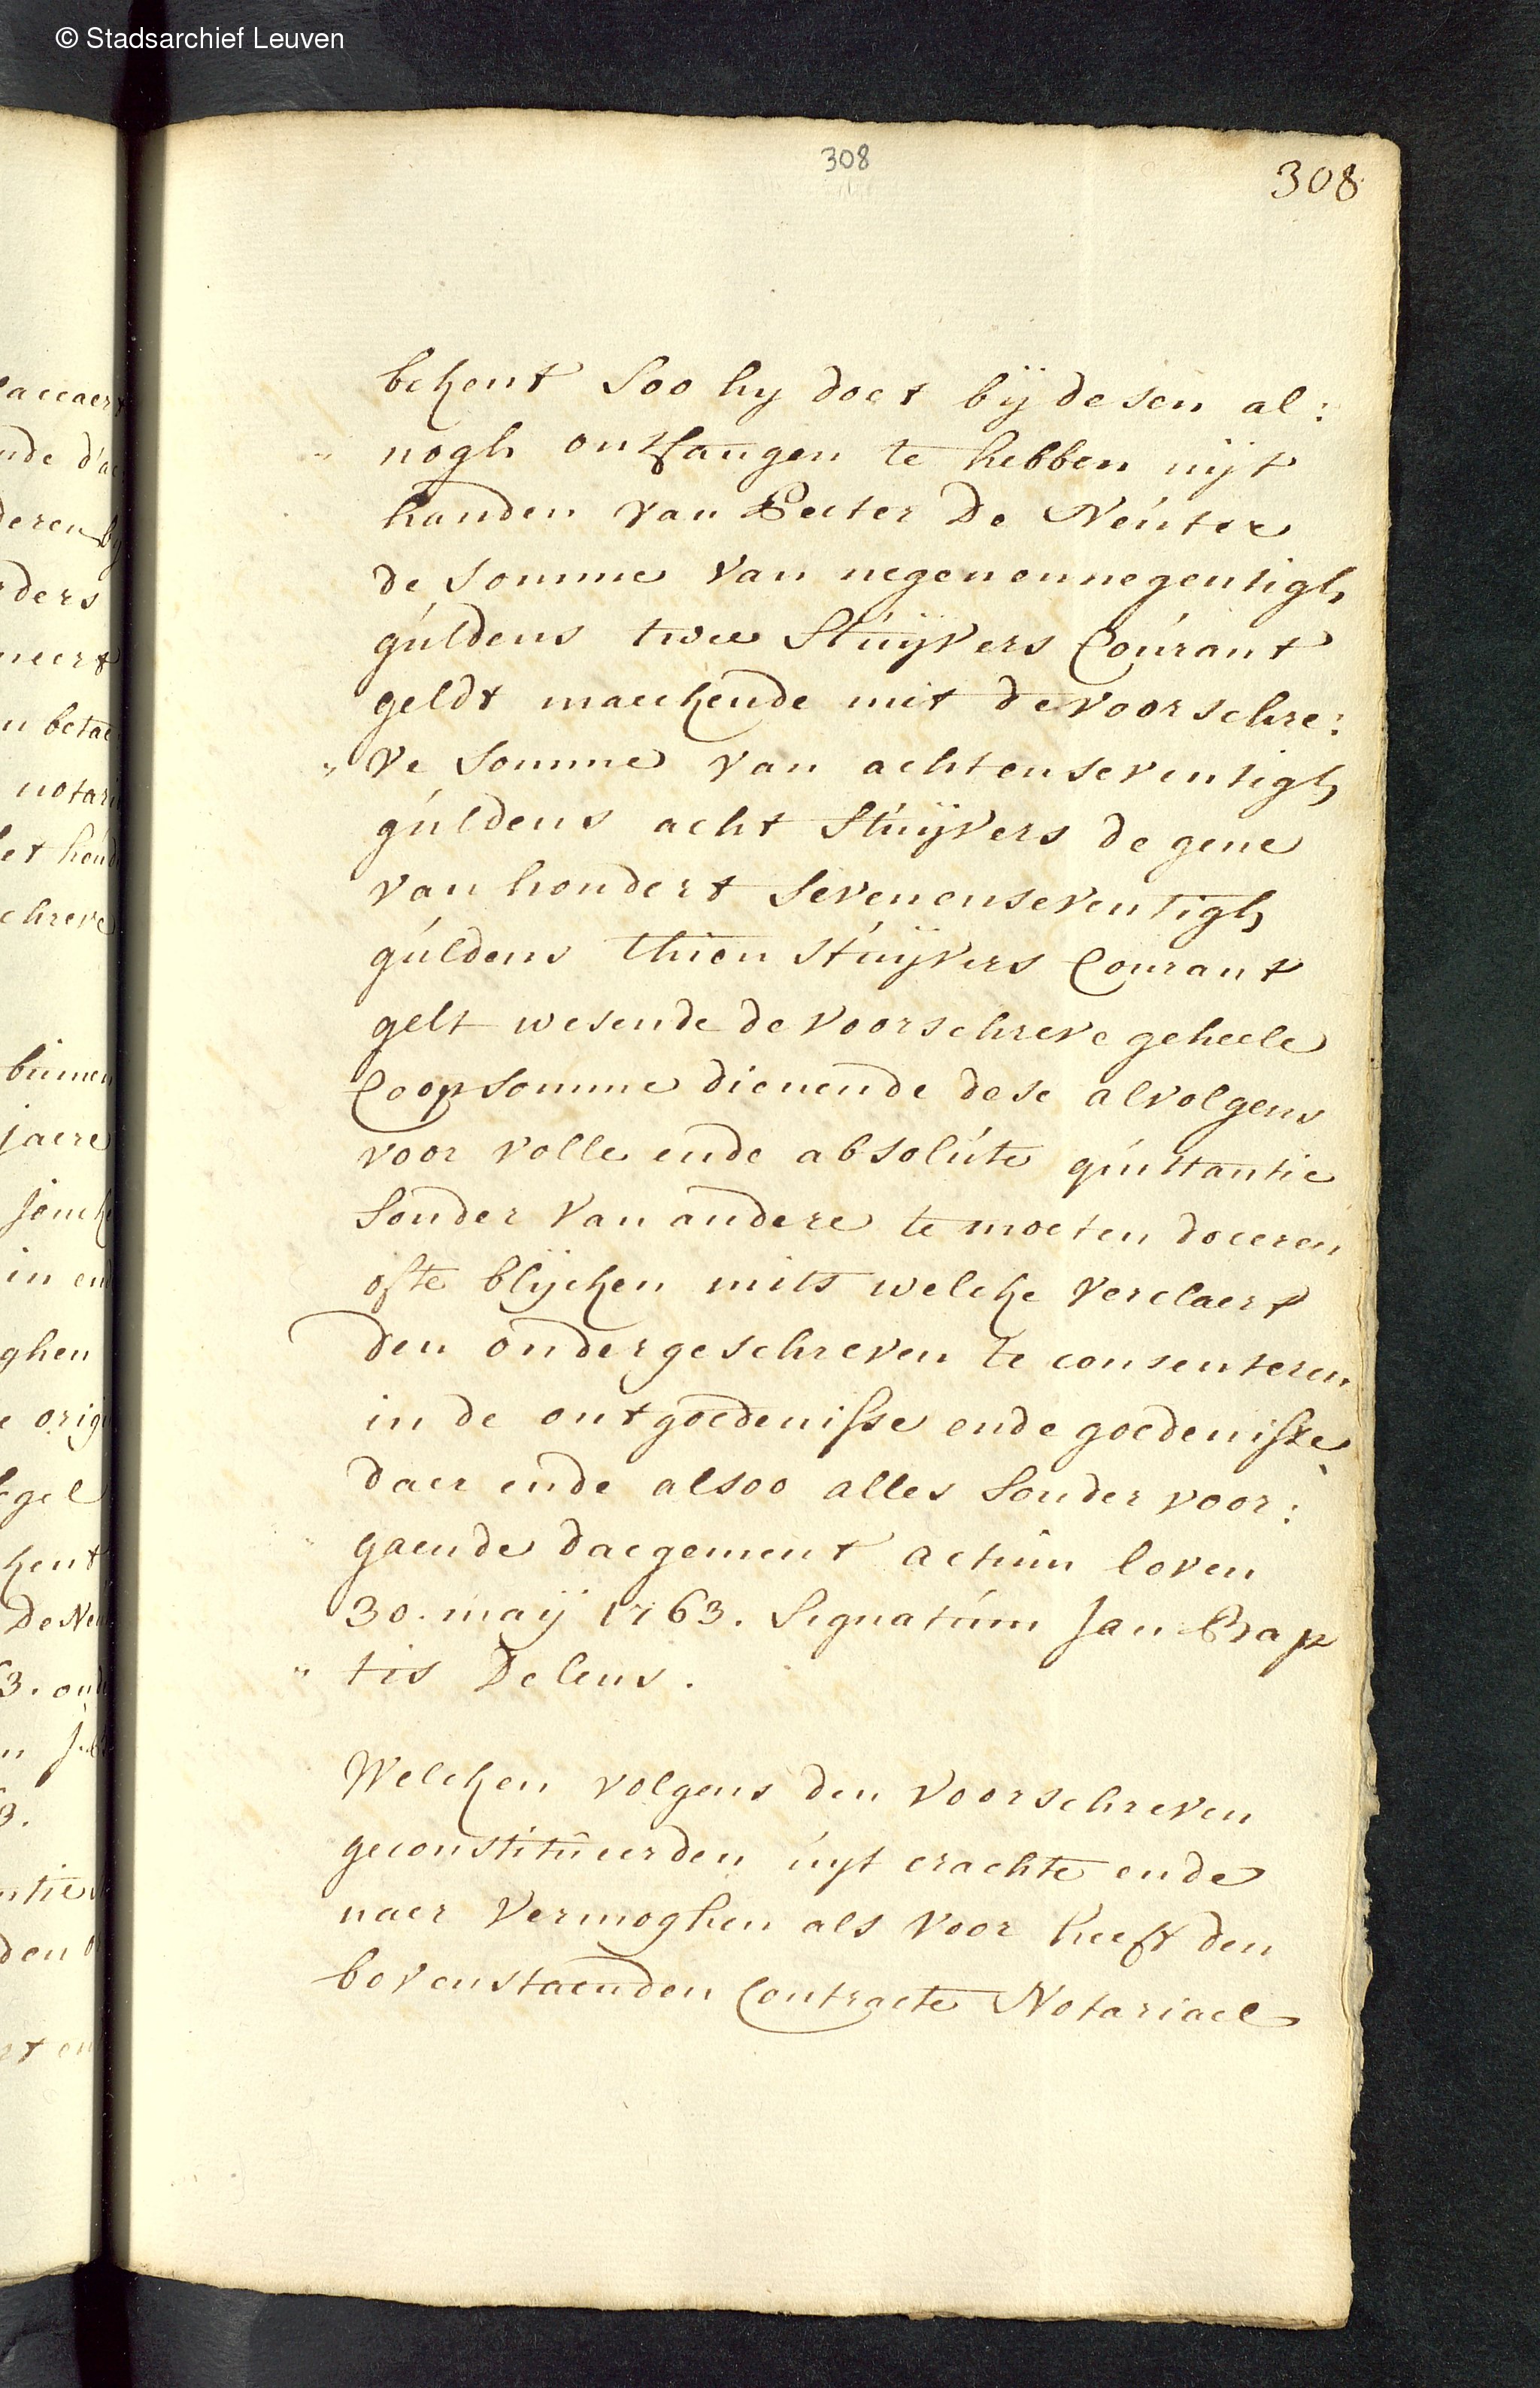 © Stadsarchief Leuven
308
308
bekent soo hy doet bÿ desen al:
" nogh ontfangen te hebben uÿt
handen van Peeter De Neúter
de somme van negenennegentigh
gúldens twee stúÿvers Coúrant
geldt maeckende met de voorschre:
" ve somme van achtensevintigh
gúldens acht stúÿvers de gene
van hondert sevenenseventigh
gúldens thien stúÿvers Courant
gelt wesende de voorschreve geheele
Coopsomme dienende dese alvolgens
voor volle ende absolúte qúittantie
sonder van andere te moeten doceren
ofte blÿcken mits welcke verclaert
den ondergeschreven te consenteren
in de ontgoedenisse ende goedenisse
daer ende alsoo alles sonder voor:
" gaende daegement actúm loven
30. maÿ 1763. Signatúm Jan Bap
" tis Delens.
Welcken volgens den voorschreven
geconstitúeerden úyt crachte ende
naer vermoghen als voor heeft den
bovenstaenden Contracte Notariael
laccaert
nde d'ac
deren bÿ
rders
neert
n betae
notari
et hond
chreve
binnen
jaere
in en
ghen
e orig
kent
De Neu
3.
den